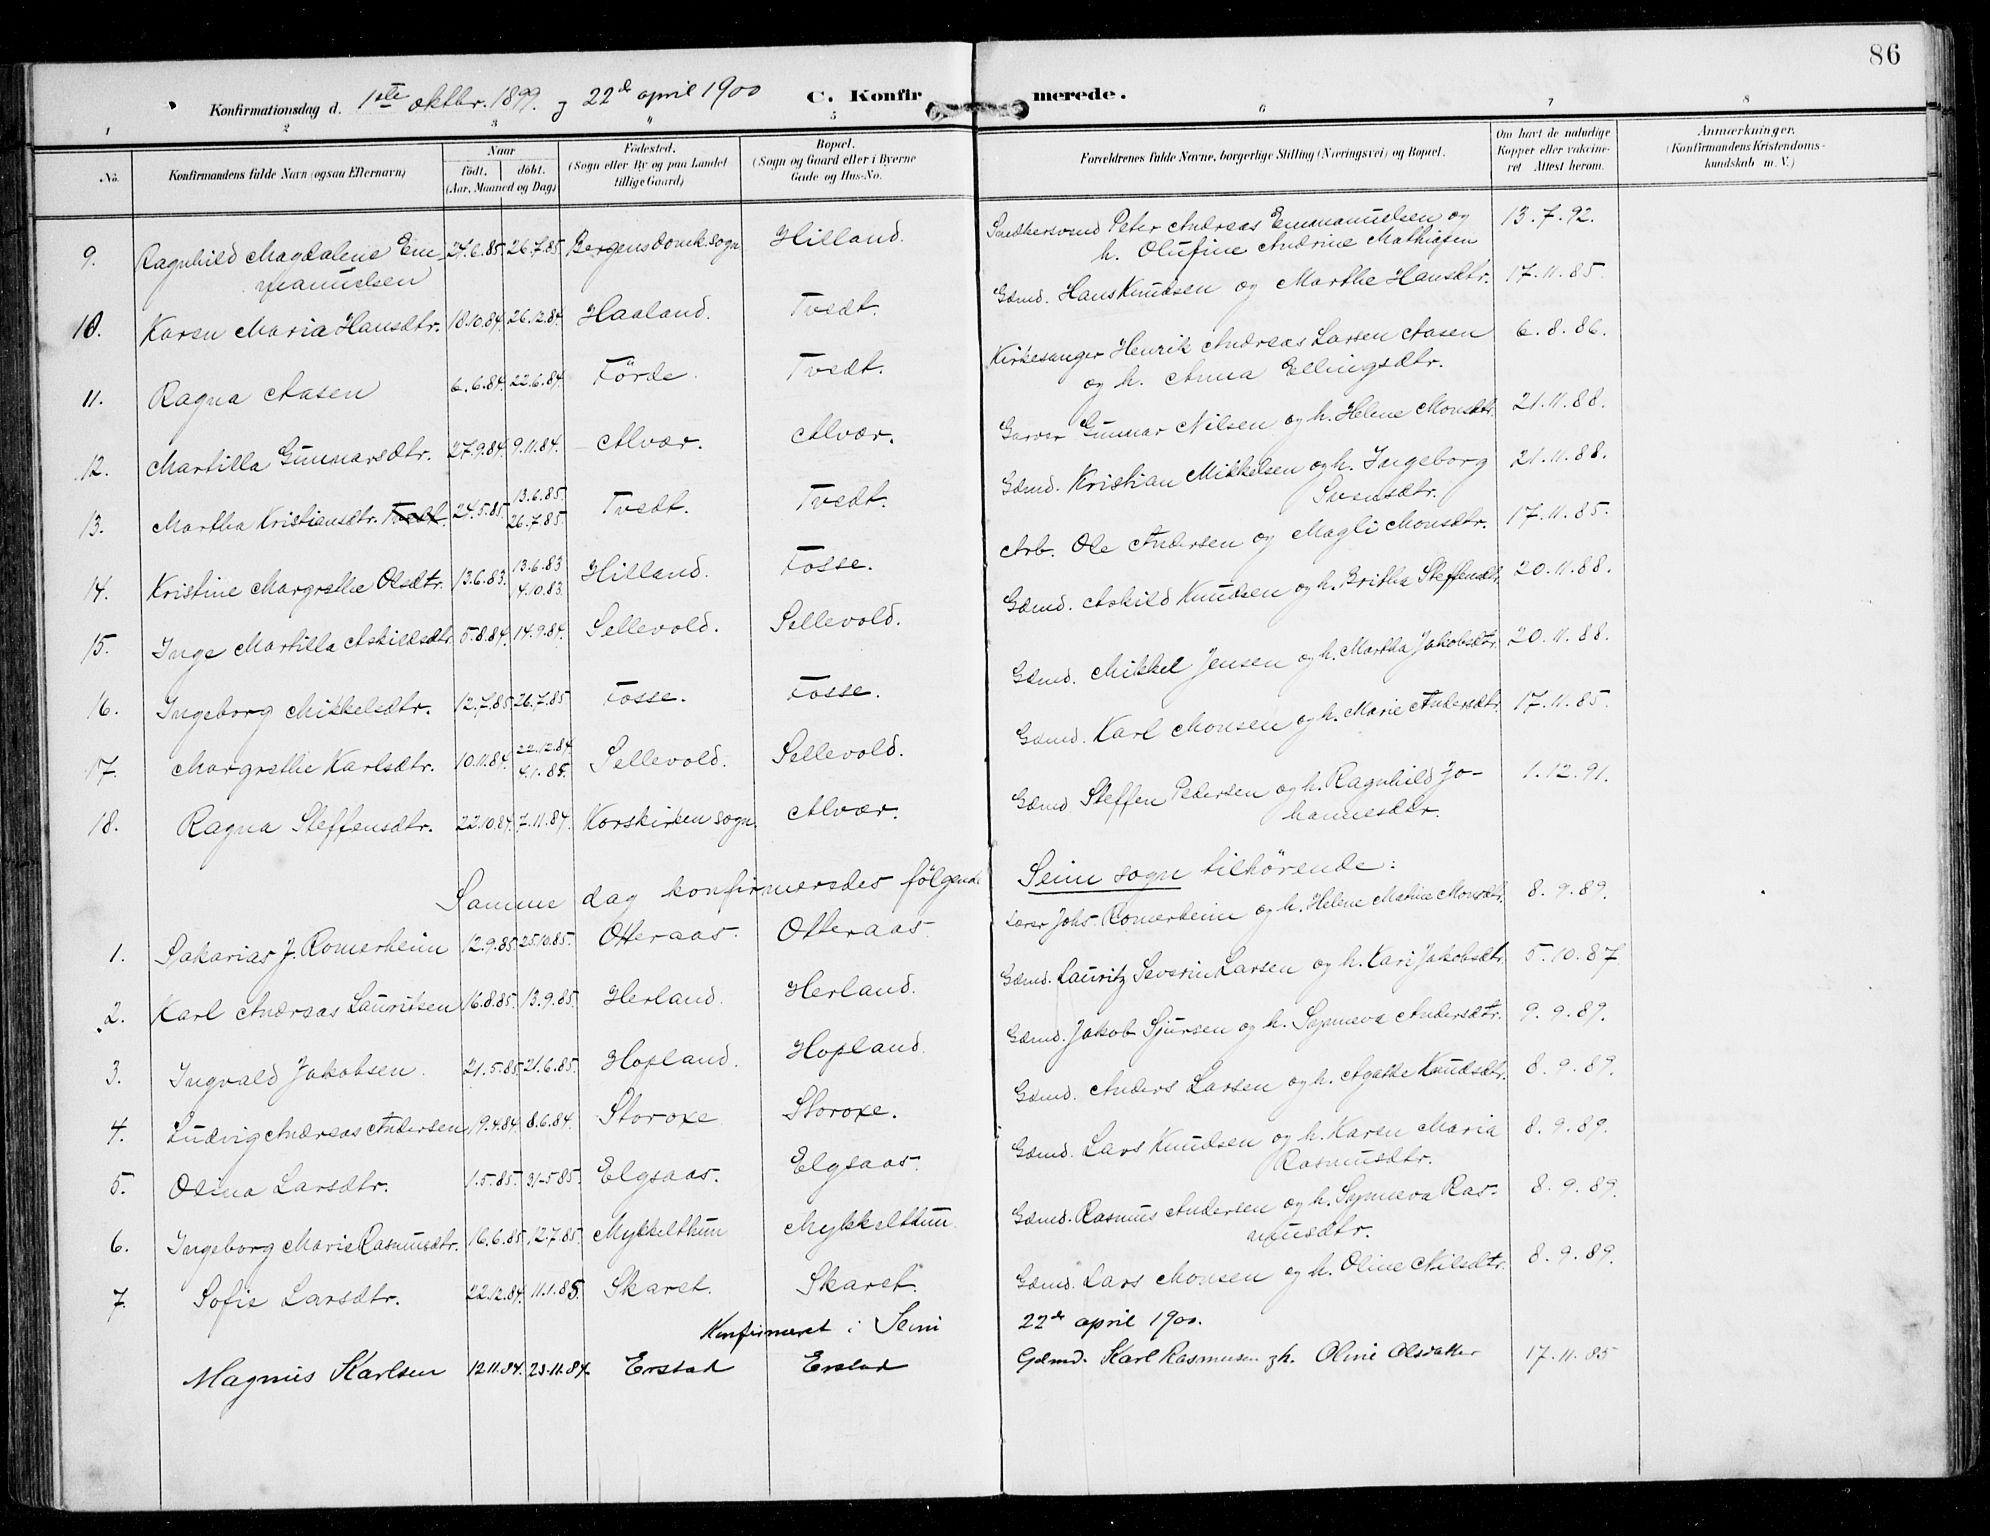 86
Konfirmationsdag d. 1ste oktbr. 1899. og 22de april 1900 C. Konfirmerede.
1 2 3 4 5 6 7 8
No. Konfirmandens fulde Navn (ogsaa Efternavn) Naar födt. döbt. (Aar, Maaned og Dag) Födested. (Sogn eller By og paa Landet tillige Gaard) Bopæl. (Sogn og Gaard eller i Byerne Gade og Hus-No. Forældrenes fulde Navne, borgerlige Stilling (Næringsvei) og Bopæl. Om havt de naturlige Kopper eller vakcineret. Attest herom. Anmærkninger. (Konfirmandens Kristendomskundskab m. V.)
9. Ragnhild Magdalene Em- 24.6.85 26.7.85 Bergens domk. sogn Hilland. Snedkersvend Peter Andreas Emmanuelsen og 13.7.92.
manuelsen h. Olufine Andrine Mathiasen
10. Karen Maria Hansdtr. 18.10.84 26.12.84 Haaland. Tvedt. Gdmd. Hans Knudsen og Marthe Hansdtr. 17.11.85.
11. Ragna Aasen 6.6.84. 22.6.84 Förde. Tvedt. Kirkesanger Henrik Andreas Larsen Aasen 6.8.86.
og h. Anna Ellingsdtr.
12. Martilla Gunnarsdtr. 27.9.84. 9.11.84. Alvær. Alvær. Garver Gunnar Nilsen og h. Helene Monsdtr. 21.11.88.
13. Martha Kristiansdtr. Tvedt. 24.5.85. 13.6.85. 26.7.85. Tvedt. Tvedt. Gdmd. Kristian Mikkelsen og h. Ingeborg 21.11.88.
Svensdtr.
14. Kristine Margrethe Olsdtr. 13.6.83. 13.6.83 14.10.83. Hilland. Fosse. Arb. Ole Andersen og Magli Monsdtr. 17.11.85.
15. Inge Martilla Askildsdtr. 5.8.84. 14.9.84. Sellevold. Sellevold. Gdmd. Askild Knudsen og h. Britha Steffensdtr. 20.11.88.
16. Ingeborg Mikkelsdtr. 12.7.85. 26.7.85 Fosse. Fosse. Gdmd. Mikkel Jensen og h. Martha Jakobsdtr. 20.11.88.
17. Margrethe Karlsdtr. 10.11.84. 22.12.84. 4.1.85. Sellevold. Sellevold. Gdmd. Karl Monsen og h. Marie Andersdtr. 17.11.85.
18. Ragna Steffensdtr. 22.10.84. 7.11.84. Korskirken sogn. Alvær. Gdmd Steffen Pedersen og h. Ragnhild Jo- 1.12.91.
hannesdtr.
Samme dag konfirmeredes fölgende Seim sogn tilhörende:
1. Sakarias J. Romerheim 12.9.85. 25.10.85. Otteraas. Otteraas. Lærer Johs. Romerheim og h. Helene Marine Monsdtr. 8.9.89.
2. Karl Andreas Lauritsen 16.8.85. 13.9.85. Herland. Herland. Gdmd. Lauritz Severin Larsen og h. Kari Jakobsdtr. 5.10.87
3. Ingvald Jakobsen. 21.5.85 21.6.85. Hopland. Hopland. Gdmd. Jakob Sjursen og h. Synneva Andersdtr. 9.9.89.
4. Ludvig Andreas Andersen 19.4.84. 8.6.84. Storoxe Storoxe. Gdmd. Anders Larsen og h. Agathe Knudsdtr. 8.9.89.
5. Olina Larsdtr. 1.5.85. 31.5.85. Elgsaas. Elgsaas. Gdmd. Lars Knudsen og h. Karen Maria 8.9.89.
Rasmusdtr.
6. Ingeborg Marie Rasmusdtr. 16.6.85. 12.7.85. Mykkelthun Mykkelthun. Gdmd. Rasmus Andersen og h. Synneva Ras- 8.9.89.
musdtr.
7. Sofie Larsdtr. 22.12.84. 11.1.85. Skaret. Skaret. Gdmd. Lars Monsen og h. Oline Nilsdtr. 8.9.89.
Konfirmeret i Seim 22de april 1900.
Magnus Karlsen 12.11.84. 23.11.84. Erstad Erstad Gdmd. Karl Rasmusen og h. Oline Olsdatter 17.11.85